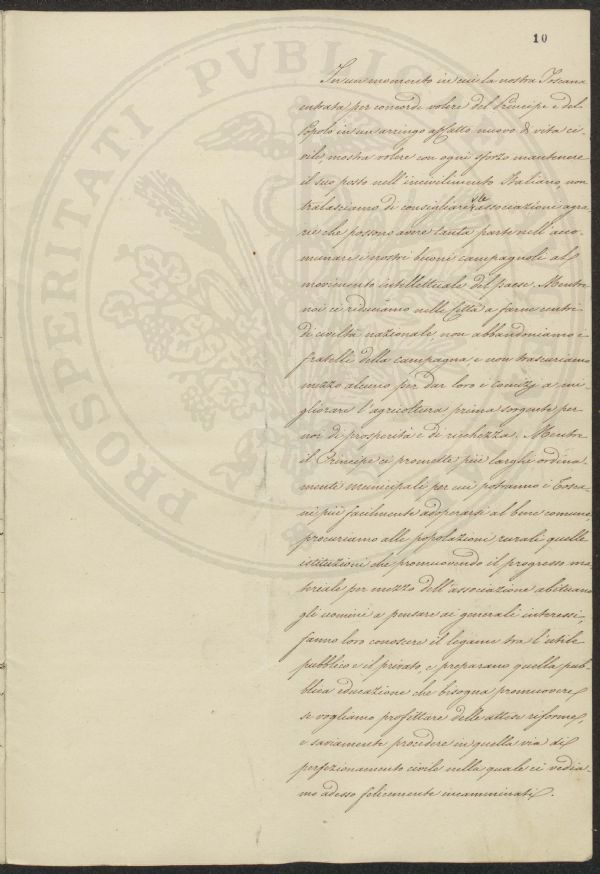 10
PROSPERITATI PVBLICAE
In un momento in cui la nostra Toscana
entrata per concorde volere del Principe e del
Popolo in un arringo affatto nuovo di vita ci-
vile, mostra volere con ogni sforzo mantenere
il suo posto nell'incivilimento Italiano, non
tralasciamo di consigliare le associazioni agra-
rie che possono avere tanta parte nell'acco-
munare i nostri buoni campagnoli al
movimento intellettuale del paese. Mentre
noi ci riduciamo nelle Città a farne centri
di civiltà nazionale non abbandoniamo i
fratelli della campagna e non trascuriamo
mezzo alcuno per dar loro e a mi-
gliorare l'agricoltura prima sorgente per
noi di prosperità e di richezza. Mentre
il Principe ci promette più larghi ordina
menti municipali per cui potranno i Tosca-
ni più facilmente adoperarsi al bene comune,
procuriamo alle popolazioni rurali quelle
istituzioni che promuovendo il progresso ma-
teriale per mezzo dell'associazione abituano
gli uomini a pensare ai generali interessi,
fanno loro conoscere il legame tra l'utile
pubblico e il privato, e preparano quella pub-
blica educazione che bisogna promuovere
se vogliamo profittare delle attese riforme,
e saviamente procedere in quella via di
perfezionamento civile nella quale ci vedia-
mo adesso felicemente incamminati.